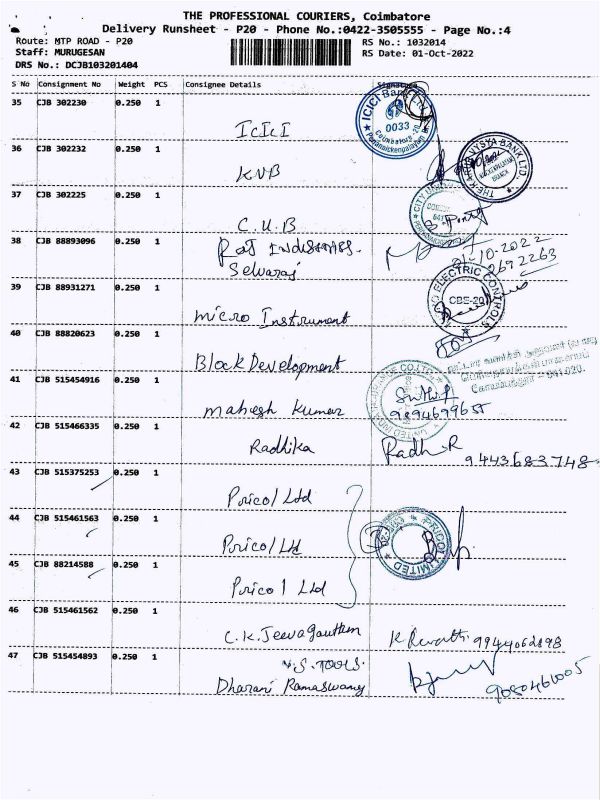 THE PROFESSIONAL COURIERS, Coimbatore
Delivery Runsheet - P20 - Phone No.:0422-3505555 - Page No.:4
Route: MTP ROAD - P20 RS No.: 1032014
Staff: MURUGESAN RS Date: 01-Oct-2022
DRS No.: DCJB103201404
S No Consignment No Weight PCS Consignee Details Signature
35 CJB 302230 0.250 1
ICICI ICICI Bank 0033 Coimbatore-20
36 CJB 302232 0.250 1
KVB VYSYA BANK LTD
37 CJB 302225 0.250 1
C.U.B CITY
38 CJB 88893096 0.250 1
Raj Industries.
Selvaraj -10-2022
39 CJB 88931271 0.250 1
Micro Instrument ELECTRIC CONTROLS CBE-20
40 CJB 88820623 0.250 1
Block Development
41 CJB 515454916 0.250 1
Mahesh Kumar
42 CJB 515466335 0.250 1
Radhika Radh R 9443683748
43 CJB 515375253 0.250 1
Pricol Ltd
44 CJB 515461563 0.250 1
Pricol Ltd PRICOL LIMITED
45 CJB 88214588 0.250 1
Pricol Ltd
46 CJB 515461562 0.250 1
C.K. Jeevagautham K Revathi 9944062898
47 CJB 515454893 0.250 1
V.S. TOOLS.
Dharani Ramaswamy